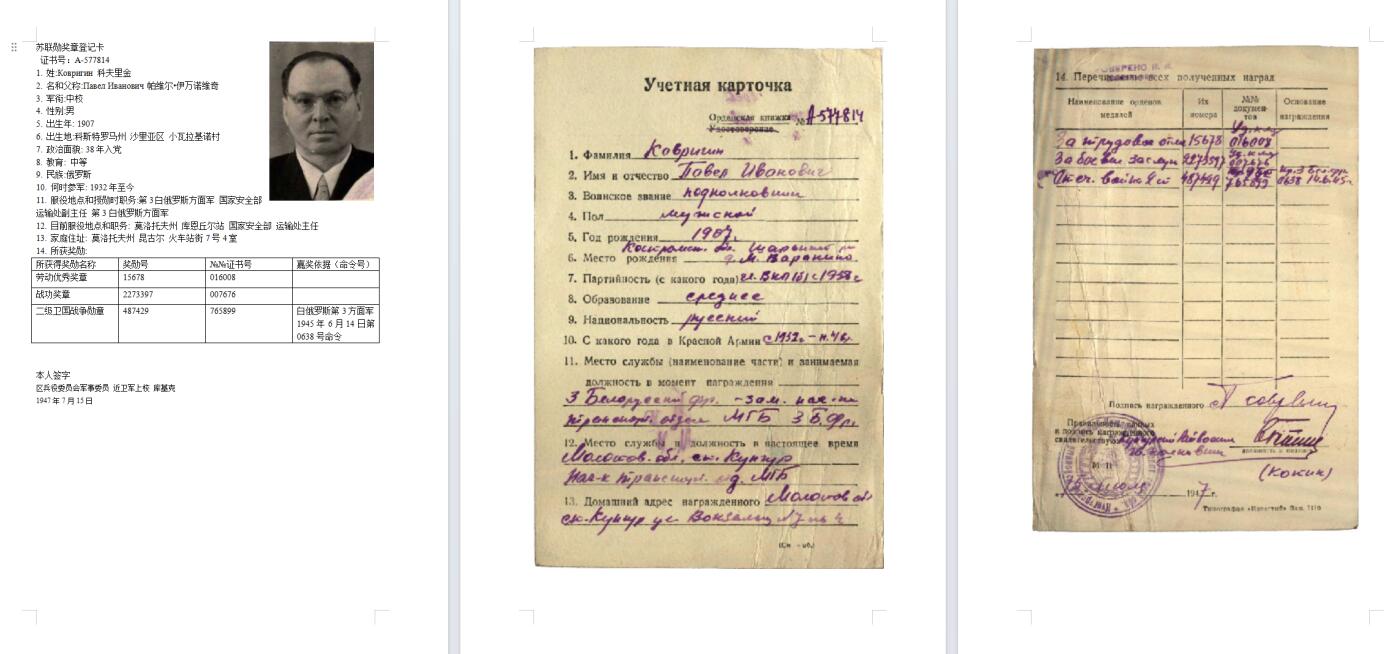 苏联勋奖章登记卡
证书号：A-577814
1. 姓:Ковригин 科夫里金
2. 名和父称:Павел Иванович 帕维尔•伊万诺维奇
3. 军衔:中校
4. 性别:男
5. 出生年: 1907
6. 出生地:科斯特罗马州 沙里亚区 小瓦拉基诺村
7. 政治面貌: 38年入党
8. 教育: 中等
9. 民族:俄罗斯
10. 何时参军: 1932年至今
11. 服役地点和授勋时职务:第3白俄罗斯方面军 国家安全部
运输处副主任 第3白俄罗斯方面军
12. 目前服役地点和职务: 莫洛托夫州 库恩丘尔站 国家安全部 运输处主任
13. 家庭住址: 莫洛托夫州 昆古尔 火车站街7号4室
14. 所获奖励:
所获得奖励名称 奖励号 №№证书号 嘉奖依据（命令号）
劳动优秀奖章 15678 016008
战功奖章 2273397 007676
二级卫国战争勋章 487429 765899 白俄罗斯第3方面军
1945年 6月14日第
0638号命令
本人签字
区兵役委员会军事委员 近卫军上校 库基克
1947年7月15日
Учетная карточка
Орденская книжка № А-577814
Удостоверение
1. Фамилия Ковригин
2. Имя и отчество Павел Иванович
3. Воинское звание подполковник
4. Пол мужской
5. Год рождения 1907г.
Костромск. обл. Шарьинск
6. Место рождения д. М. Варакино
7. Партийность (с какого года) чл. ВКП(б) с 1938г
8. Образование среднее
9. Национальность русский
10. С какого года в Красной Армии с 1932г.
11. Место службы (наименование части) и занимаемая
должность в момент награждения
3 Белорусский фр. - зам. нач-ка
транспорт. отдел МГБ 3 Б.Фр.
12. Место службы и должность в настоящее время
Молотов. обл. ст. Кунгур
Нач-к транспорт. отд. МГБ
13. Домашний адрес награжденного Молотов обл
ст. Кунгур ул. Вокзальн №7 кв 4
14. Перечисление всех полученных наград
Наименование орденов медалей Их номера №№ документов Основание награждения
За трудовое отл 15678 Уд.кн 016008
За боевы заслуги 2273397 Уд.кн 007676
Отеч. войны II ст 487429 765899 Пр. 3 Бел.фр. 0638 14.6.45г.
Подпись награжденного
Правильность данных
и подпись награжденного
свидетельствую:
(Кокин)
М. П.
июля 1947 г.
Типография «Известий» Зак. 1110